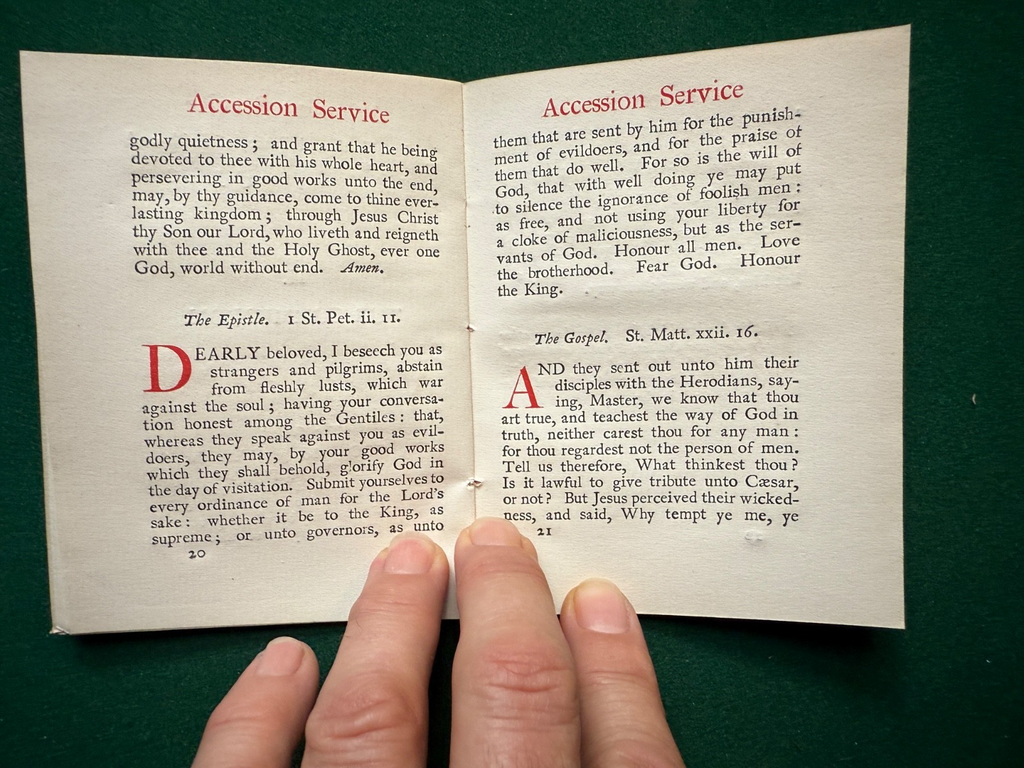 Accession Service
godly quietness; and grant that he being
devoted to thee with his whole heart, and
persevering in good works unto the end,
may, by thy guidance, come to thine ever-
lasting kingdom; through Jesus Christ
thy Son our Lord, who liveth and reigneth
with thee and the Holy Ghost, ever one
God, world without end. Amen.
The Epistle. 1 St. Pet. ii. 11.
DEARLY beloved, I beseech you as
strangers and pilgrims, abstain
from fleshly lusts, which war
against the soul; having your conversa-
tion honest among the Gentiles: that,
whereas they speak against you as evil-
doers, they may, by your good works
which they shall behold, glorify God in
the day of visitation. Submit yourselves to
every ordinance of man for the Lord's
sake: whether it be to the King, as
supreme; or unto governors, as unto
20
Accession Service
them that are sent by him for the punish-
ment of evildoers, and for the praise of
them that do well. For so is the will of
God, that with well doing ye may put
to silence the ignorance of foolish men:
as free, and not using your liberty for
a cloke of maliciousness, but as the ser-
vants of God. Honour all men. Love
the brotherhood. Fear God. Honour
the King.
The Gospel. St. Matt. xxii. 16.
AND they sent out unto him their
disciples with the Herodians, say-
ing, Master, we know that thou
art true, and teachest the way of God in
truth, neither carest thou for any man:
for thou regardest not the person of men.
Tell us therefore, What thinkest thou?
Is it lawful to give tribute unto Cæsar,
or not? But Jesus perceived their wicked-
ness, and said, Why tempt ye me, ye
21